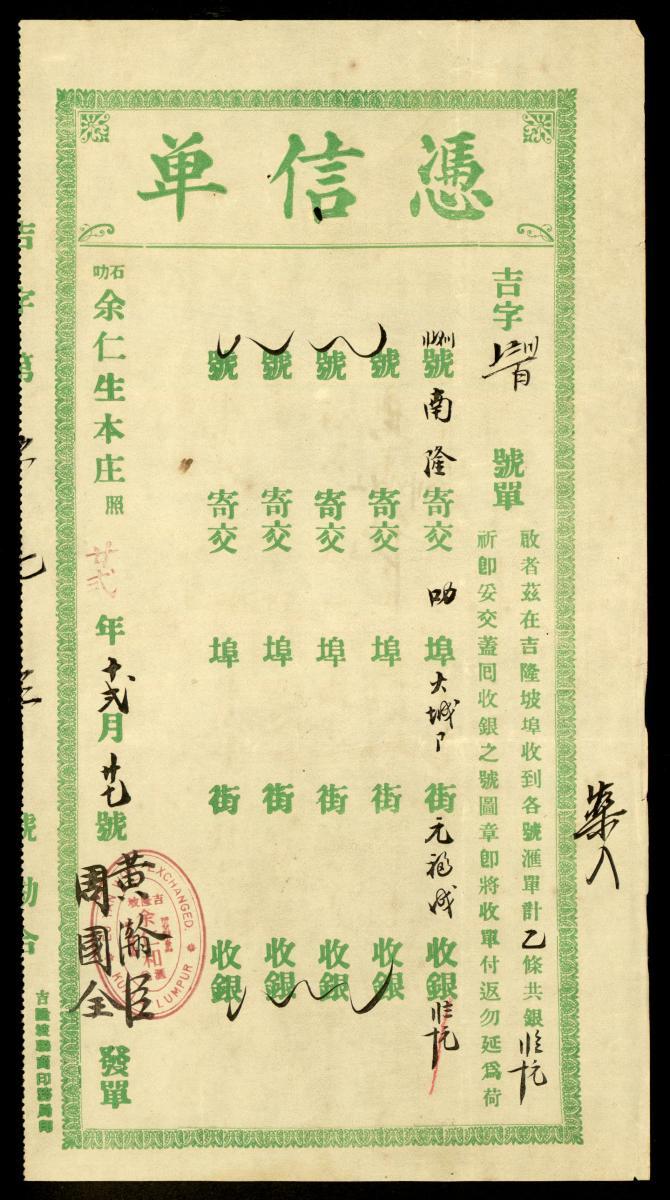 憑信单
吉字 號單
啟者茲在吉隆坡埠收到各號滙單計乙條共銀
祈即妥交蓋囘收銀之號圖章即將收單付返勿延爲荷
號南隆寄交叻埠大城下街元福成收銀
號 寄交 埠 街 收銀
號 寄交 埠 街 收銀
號 寄交 埠 街 收銀
號 寄交 埠 街 收銀
石叻余仁生本庄照
廿弍年十弍月廿七號黃瀚臣周國全發單
EXCHANGED.
吉隆坡
余仁和
KUALA LUMPUR
吉字第
號勘合
吉隆坡聯商印務局印